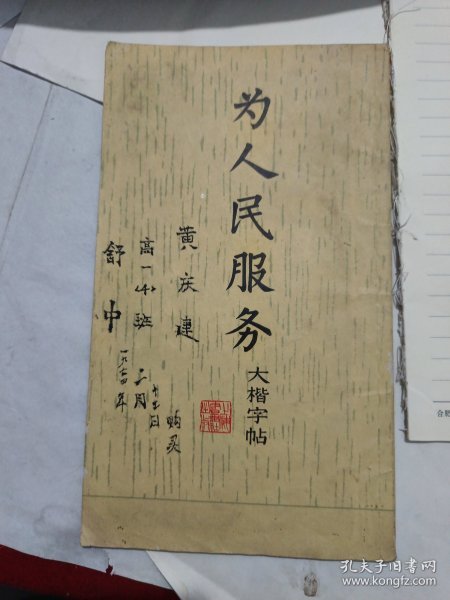 为人民服务
大楷字帖
黄庆建
高一(4)班
舒中
一九七四年
三月
十三日
购买
合肥
孔夫子旧书网
www.kongfz.com